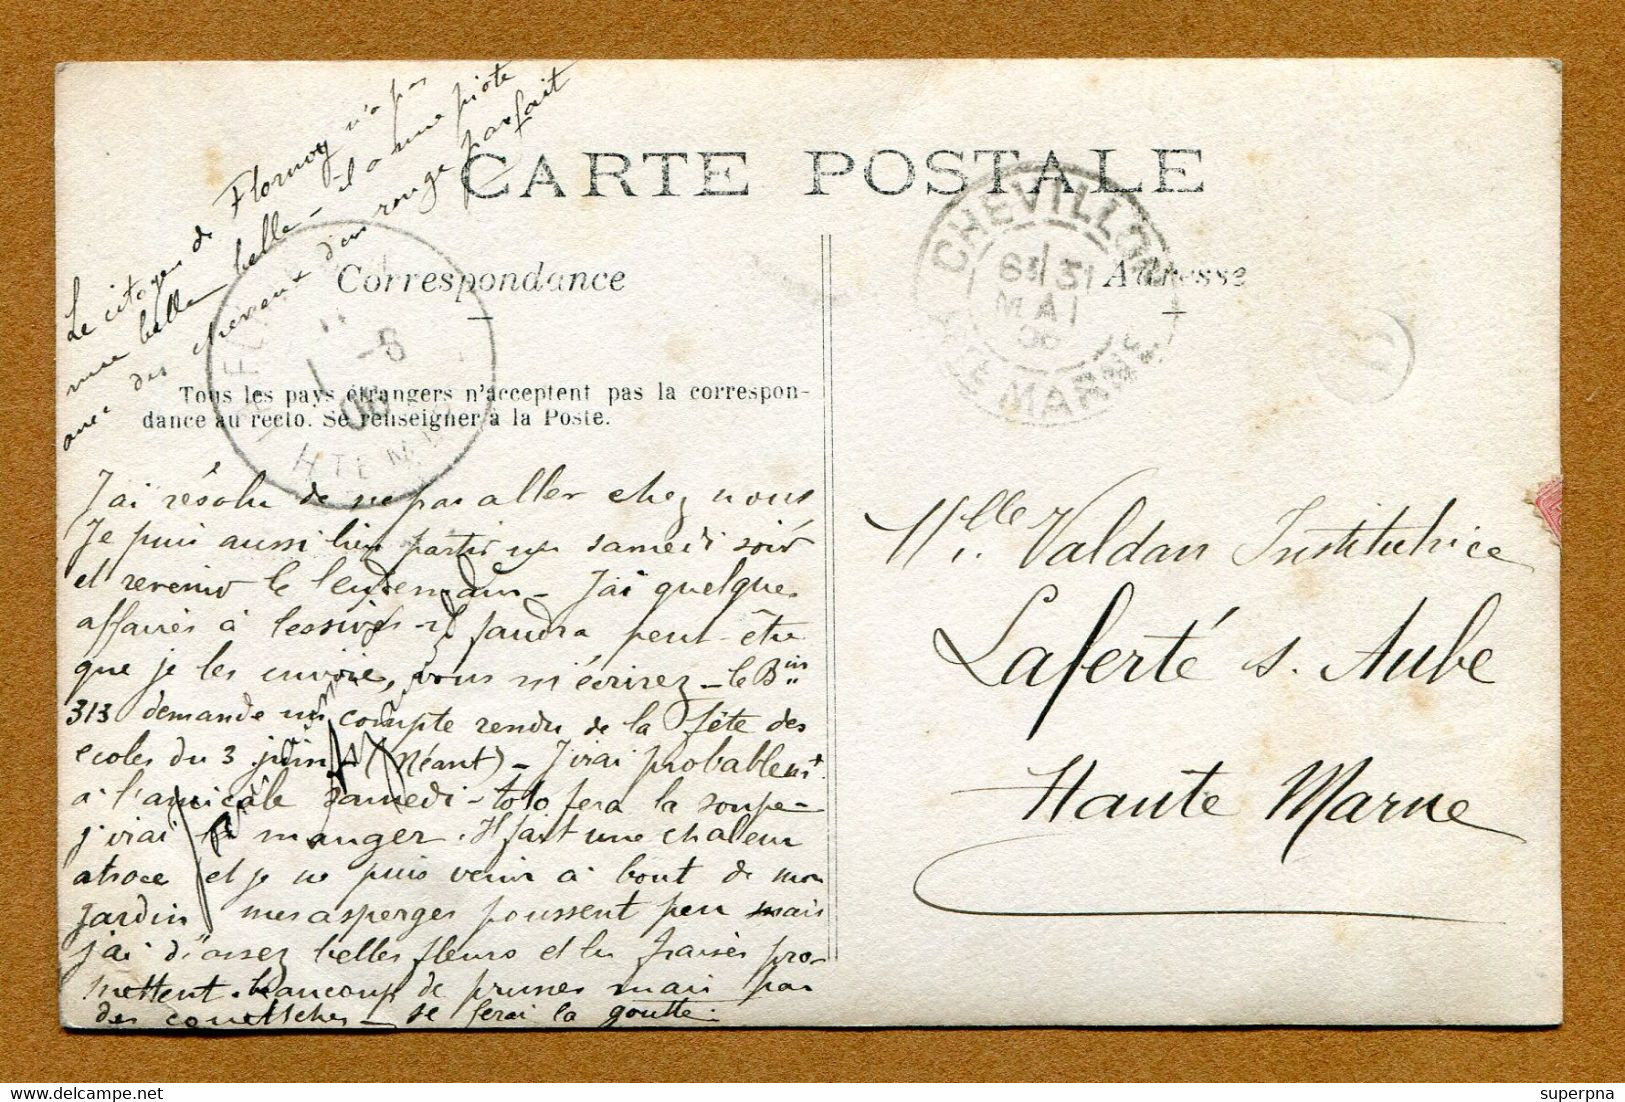 Le citoyen de Flornoy n'a pas
une belle belle - il a une piote
avec des cheveux d'un rouge parfait
CARTE POSTALE
Correspondance
Tous les pays étrangers n'acceptent pas la correspon-
dance au recto. Se renseigner à la Poste.
-8
06
HTE M
J'ai résolu de ne pas aller chez nous
Je puis aussi bien partir un samedi soir
et revenir le lendemain - J'ai quelques
affaires à lessiver - il faudra peut-être
que je les envoie, vous m'écrirez - le Bin
313 demande un compte rendu de la fête des
écoles du 3 juin (Néant) - J'irai probablemt
à l'amicale samedi - toto fera la soupe -
j'irai la manger. Il fait une chaleur
atroce et je ne puis venir à bout de mon
jardin mes asperges poussent peu mais
j'ai d'assez belles fleurs et les fraises pro-
mettent. beaucoup de prunes mais pas
des couetsches - se ferai la goutte.
CHEVILLON
31
MAI
06
HTE MARNE
Adresse
Mlle. Valdan Institutrice
Laferté s. Aube
Haute Marne
superpna